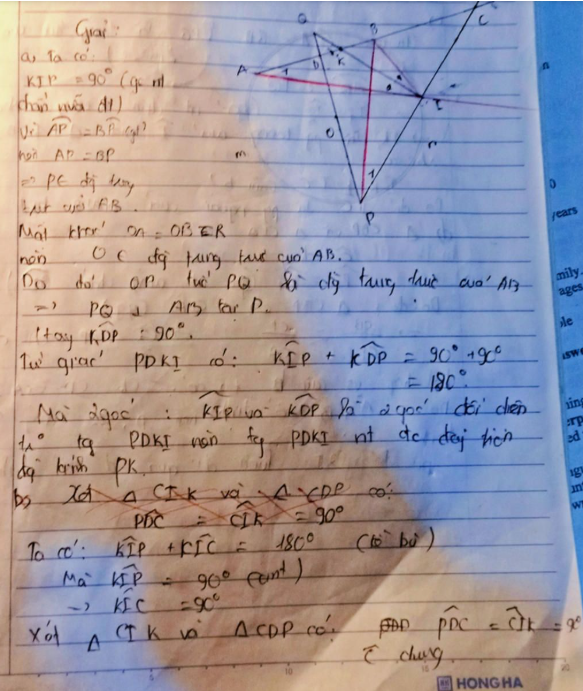 Giải:
a, Ta có:
KIP = 90° (góc nt
chắn nửa đt)
Vì AP = BP (gt)
nên AP = BP
=> PE đg trung
trực của AB.
Mặt khác OA = OB = R
nên O € đg trung trực của AB.
Do đó OP tức PQ là đg trung trực của AB
=> PQ ⊥ AB tại P.
Hay KDP = 90°.
Tứ giác PDKI có: KIP + KDP = 90° + 90°
= 180°
Mà 2 góc: KIP và KDP là 2 góc đối diện
tg PDKI nên tg PDKI nt đc
đg kính PK.
b, Xét △ CIK và △ CDP có:
PDC = CIK = 90°
Ta có: KIP + KIC = 180° (kề bù)
Mà KIP = 90° (cmt)
=> KIC = 90°
Xét △ CIK và △ CDP có: PDC = CIK = 9
C chung
A
Q
B
C
D
K
I
O
P
m
n
1
1
years
ages
HONG HA